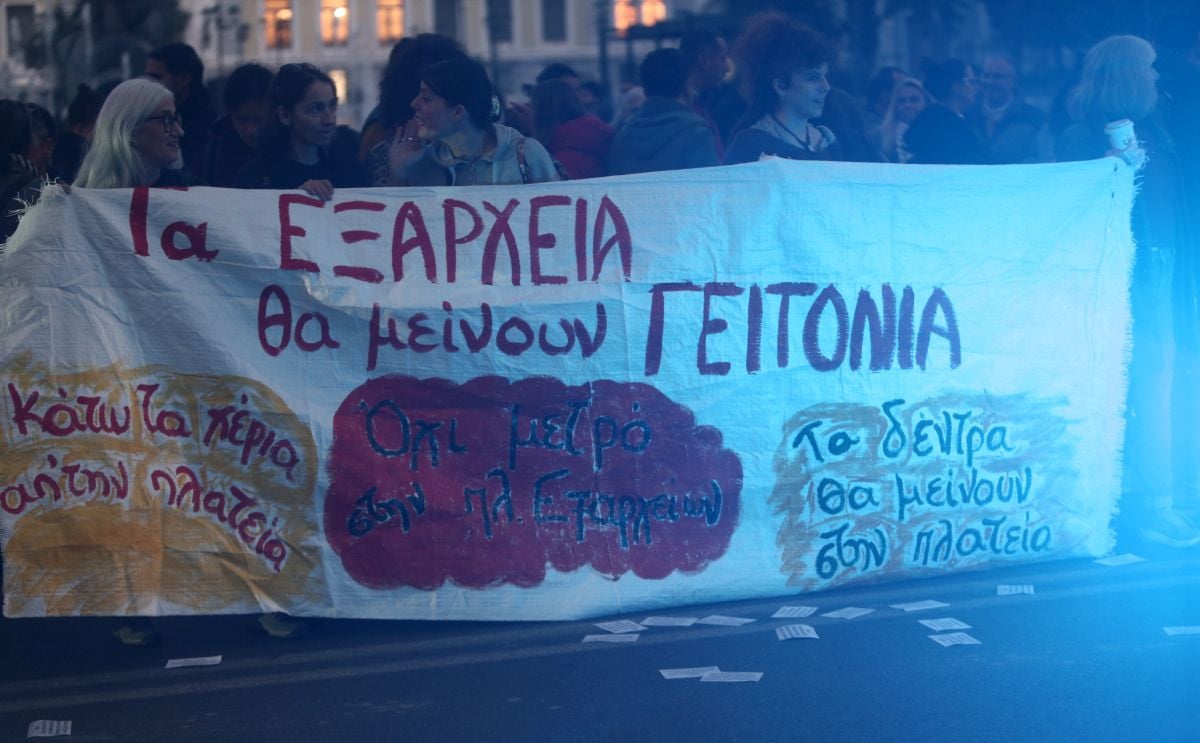 Τα ΕΞΑΡΧΕΙΑ
θα μείνουν ΓΕΙΤΟΝΙΑ
Κάτω τα χέρια
απ' την πλατεία
Όχι μετρό
στην πλ. Εξαρχείων
τα δέντρα
θα μείνουν
στην πλατεία